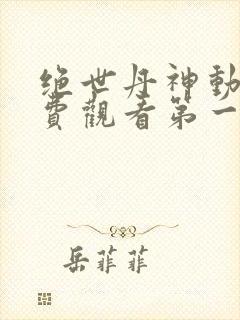 绝世丹神動
費觀看第一
岳菲菲